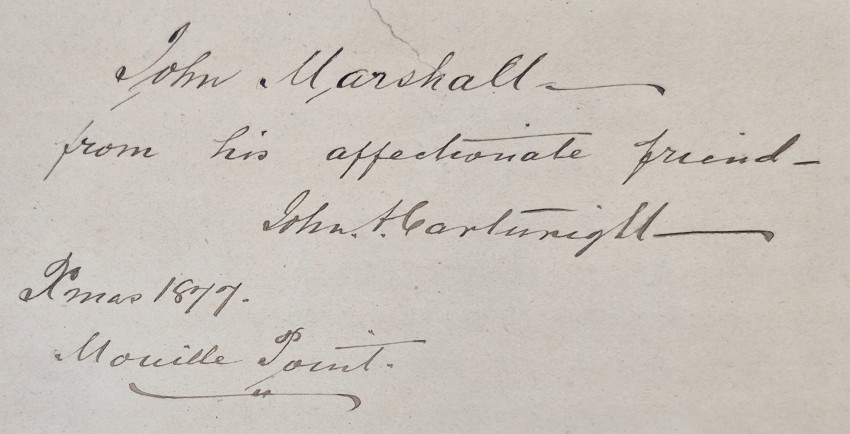 John Marshall
from his affectionate friend
John. A. Cartwright
Xmas 1877.
Mouille Point.